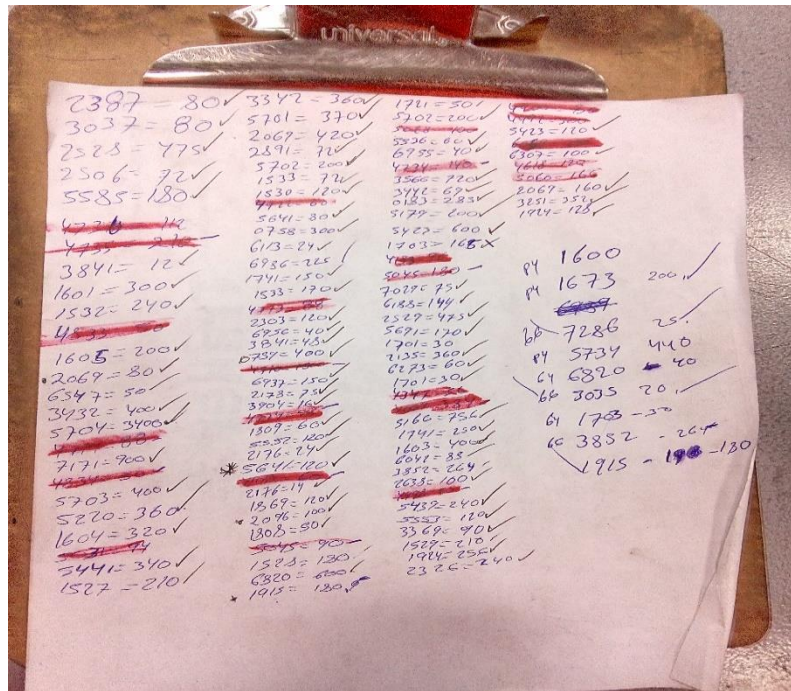 universal
2387 = 80✓
3037 = 80✓
2528 = 475✓
2506 = 72✓
5585 = 180✓
3841 = 12✓
1601 = 300✓
1532 = 240✓
1605 = 200✓
2069 = 80✓
6547 = 50✓
3432 = 400✓
5704 = 3400✓
7171 = 900✓
5703 = 400✓
5220 = 360✓
1604 = 320✓
5441 = 340✓
1527 = 210✓
3342 = 360✓
5701 = 370✓
2069 = 420✓
2891 = 72✓
5702 = 200✓
1533 = 72✓
1530 = 120✓
5641 = 80✓
0758 = 300✓
6113 = 24✓
6936 = 225
1741 = 150✓
1533 = 170✓
2303 = 120✓
6956 = 40✓
3841 = 48✓
0759 = 400✓
6937 = 150✓
2178 = 75✓
3904 = 16✓
1809 = 60✓
5552 = 120✓
2176 = 24✓
*5641 = 120✓
2176 = 14✓
1869 = 120✓
2096 = 100✓
1808 = 50✓
1528 = 180
6320 = 600✓
1915 = 180
1721 = 50✓
5702 = 200✓
5536 = 60✓
6955 = 40✓
3566 = 720✓
3442 = 69✓
0183 = 285✓
5179 = 200✓
5427 = 600✓
1703 = 165✗
7029 = 75✓
6188 = 144✓
2529 = 475✓
5691 = 170✓
1701 = 30
2135 = 360✓
6273 = 60✓
1701 = 30✓
5166 = 756✓
1741 = 250✓
1603 = 400✓
6041 = 88✓
3852 = 264✓
2638 = 100✓
5439 = 240✓
5553 = 120✓
3369 = 90✓
1529 = 210✓
1924 = 256✓
2326 = 240✓
5423 = 120✓
6307 = 100✓
2069 = 160✓
3251 = 352✓
1924 = 128✓
P4 1600
P4 1673 200✓
66 7286 25✓
P4 5734 440
64 6820 - 40
66 3035 20✓
64 1703 - 30
66 3852 - 264
1915 - 180